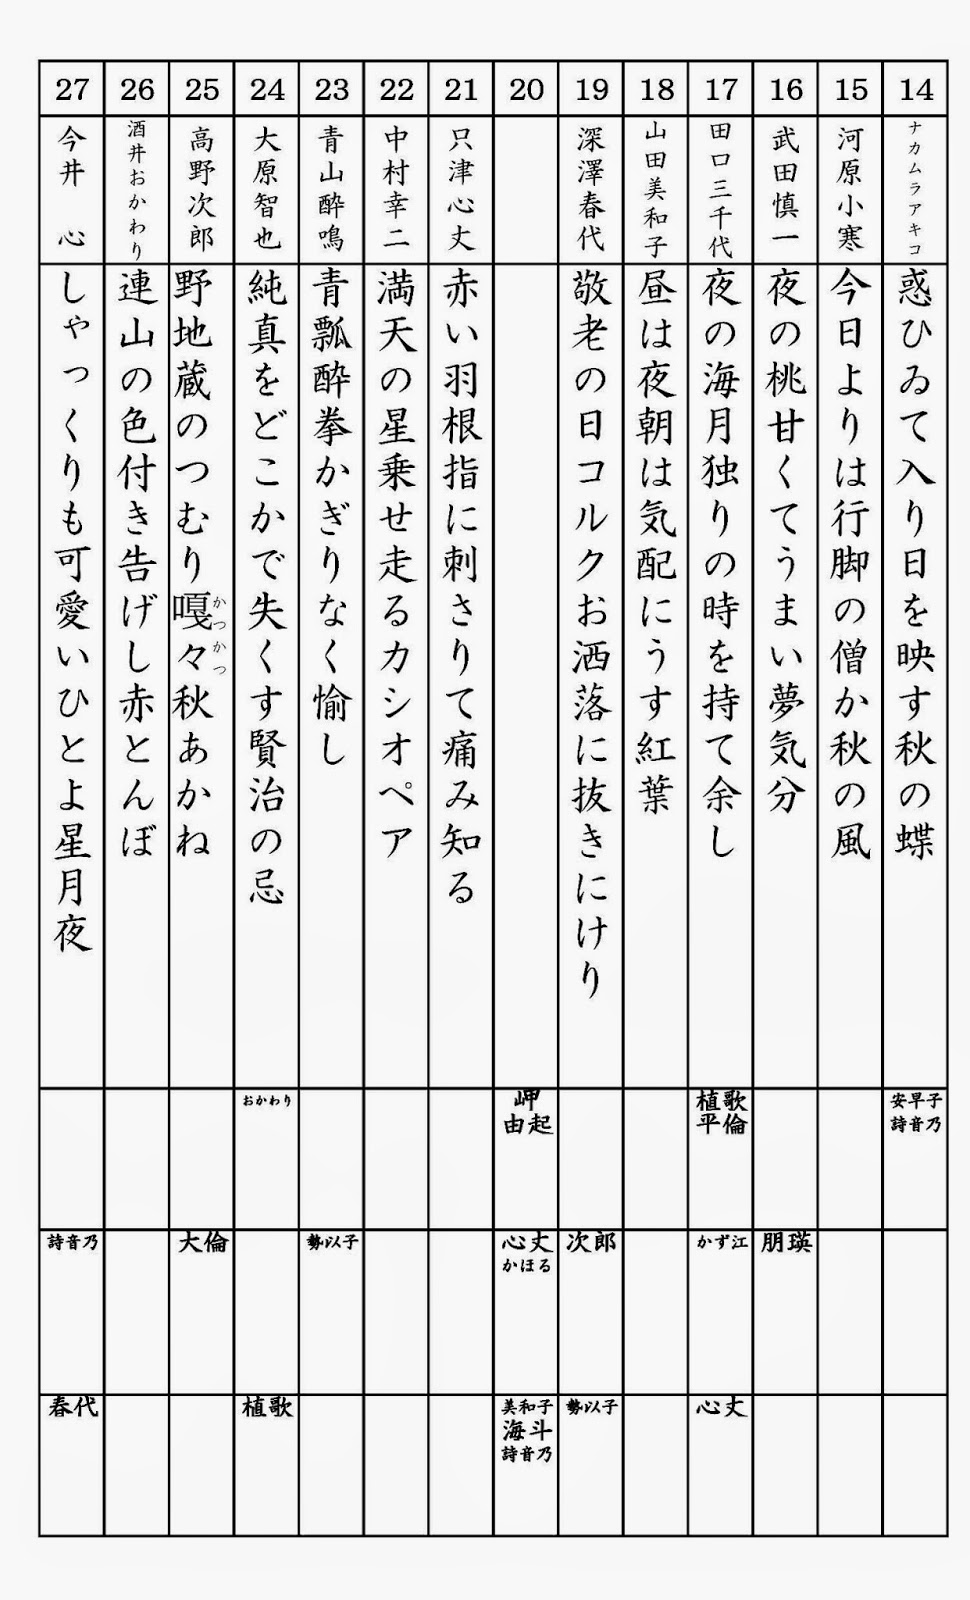 14
ナカムラアキコ
惑ひゐて入り日を映す秋の蝶
安早子
詩音乃
15
河原小寒
今日よりは行脚の僧か秋の風
16
武田慎一
夜の桃甘くてうまい夢気分
朋瑛
17
田口三千代
夜の海月独りの時を持て余し
植歌
平倫
かず江
心丈
18
山田美和子
昼は夜朝は気配にうす紅葉
19
深澤春代
敬老の日コルクお洒落に抜きにけり
次郎
勢以子
20
岬
由起
心丈
かほる
美和子
海斗
詩音乃
21
只津心丈
赤い羽根指に刺さりて痛み知る
22
中村幸二
満天の星乗せ走るカシオペア
23
青山酔鳴
青瓢酔拳かぎりなく愉し
勢以子
24
大原智也
純真をどこかで失くす賢治の忌
おかわり
植歌
25
高野次郎
野地蔵のつむり嘎々秋あかね
かつかつ
大倫
26
酒井おかわり
連山の色付き告げし赤とんぼ
27
今井　心
しゃっくりも可愛いひとよ星月夜
詩音乃
春代